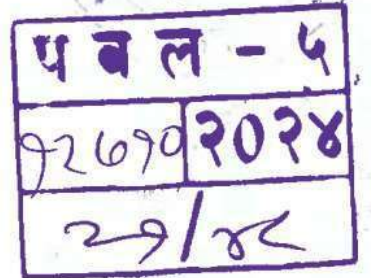 प ब ल - ५
१२७१० २०२४
२१/४८